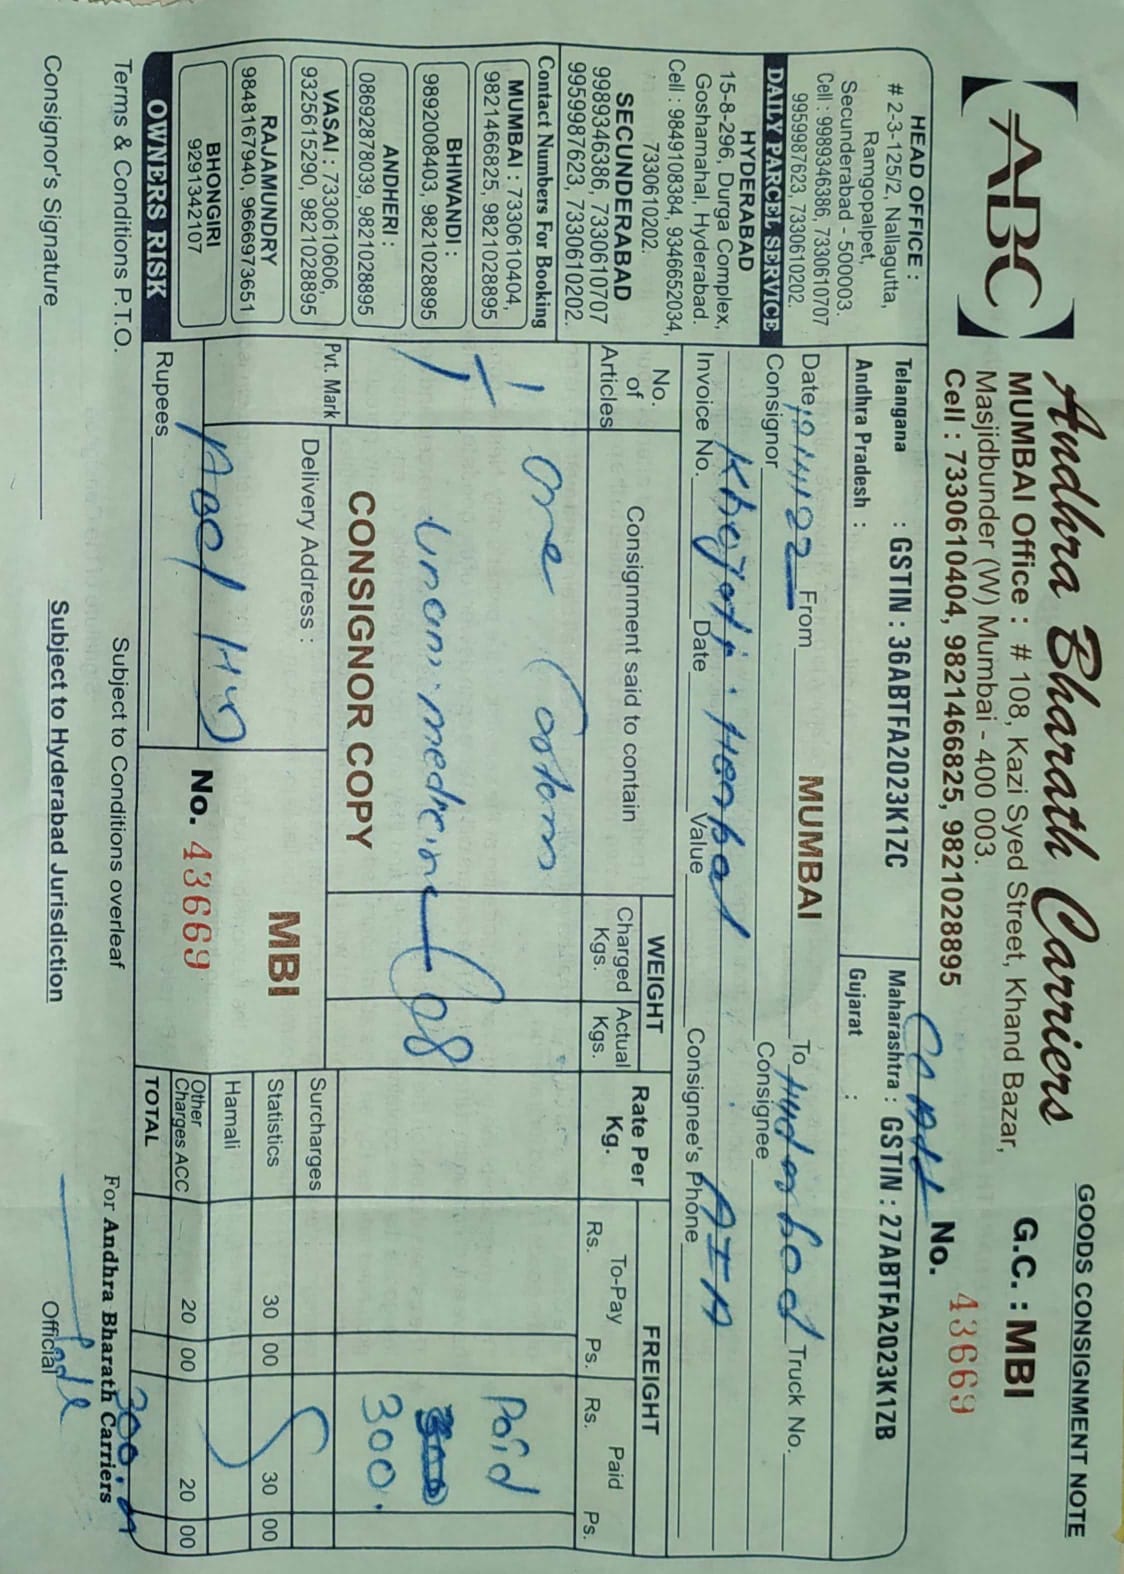 GOODS CONSIGNMENT NOTE
ABC
Andhra Bharath Carriers
MUMBAI Office : # 108, Kazi Syed Street, Khand Bazar,
Masjidbunder (W) Mumbai - 400 003.
Cell : 7330610404, 9821466825, 9821028895
G.C. : MBI
No. 43669
HEAD OFFICE :
# 2-3-125/2, Nallagutta,
Ramgopalpet,
Secunderabad - 500003.
Cell : 9989346386, 7330610707
9959987623, 7330610202.
DAILY PARCEL SERVICE
HYDERABAD
15-8-296, Durga Complex,
Goshamahal, Hyderabad.
Cell : 9849108384, 9346652034,
7330610202.
SECUNDERABAD
9989346386, 7330610707
9959987623, 7330610202.
Contact Numbers For Booking
MUMBAI : 7330610404,
9821466825, 9821028895
BHIWANDI :
9892008403, 9821028895
ANDHERI :
0869287803​9, 9821028895
VASAI : 7330610606,
9325615290, 9821028895
RAJAMUNDRY
9848167940, 9666973651
BHONGIRI
9291342107
OWNERS RISK
Telangana : GSTIN : 36ABTFA2023K1ZC
Maharashtra : GSTIN : 27ABTFA2023K1ZB
Andhra Pradesh :
Gujarat :
Date From MUMBAI To Hyderabad Truck No.
Consignor Consignee
Khojati Herbal
Invoice No. Date Value Consignee's Phone
No. of Articles
Consignment said to contain
WEIGHT
Charged Kgs.
Actual Kgs.
Rate Per Kg.
FREIGHT
To-Pay
Paid
Rs. Ps. Rs. Ps.
1 One Cartoon Paid
1 Unani medicine
300.
CONSIGNOR COPY
Pvt. Mark
Delivery Address :
MBI
Surcharges
Statistics 30 00 30 00
Hamali
Other Charges ACC 20 00 20 00
TOTAL 300
Rupees
No. 43669
Terms & Conditions P.T.O.
Subject to Conditions overleaf
For Andhra Bharath Carriers
Consignor's Signature
Subject to Hyderabad Jurisdiction
Official